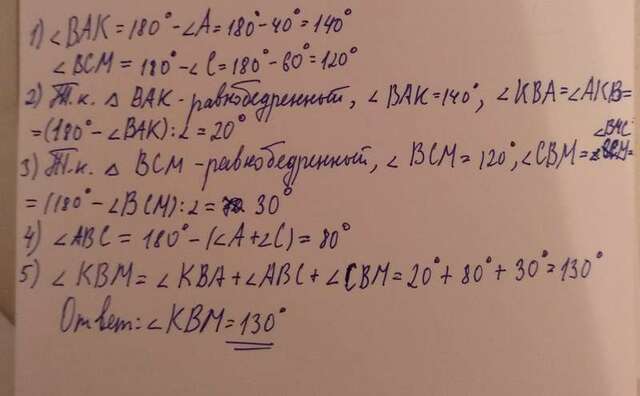 1) ∠BAK = 180° - ∠A = 180° - 40° = 140°
∠BCM = 180° - ∠C = 180° - 60° = 120°
2) Т.к. △ BAK - равнобедренный, ∠BAK = 140°, ∠KBA = ∠AKB =
= (180° - ∠BAK) : 2 = 20°
3) Т.к. △ BCM - равнобедренный, ∠BCM = 120°, ∠CBM = ∠BMC =
= (180° - ∠BCM) : 2 = 30°
4) ∠ABC = 180° - (∠A + ∠C) = 80°
5) ∠KBM = ∠KBA + ∠ABC + ∠CBM = 20° + 80° + 30° = 130°
Ответ: ∠KBM = 130°